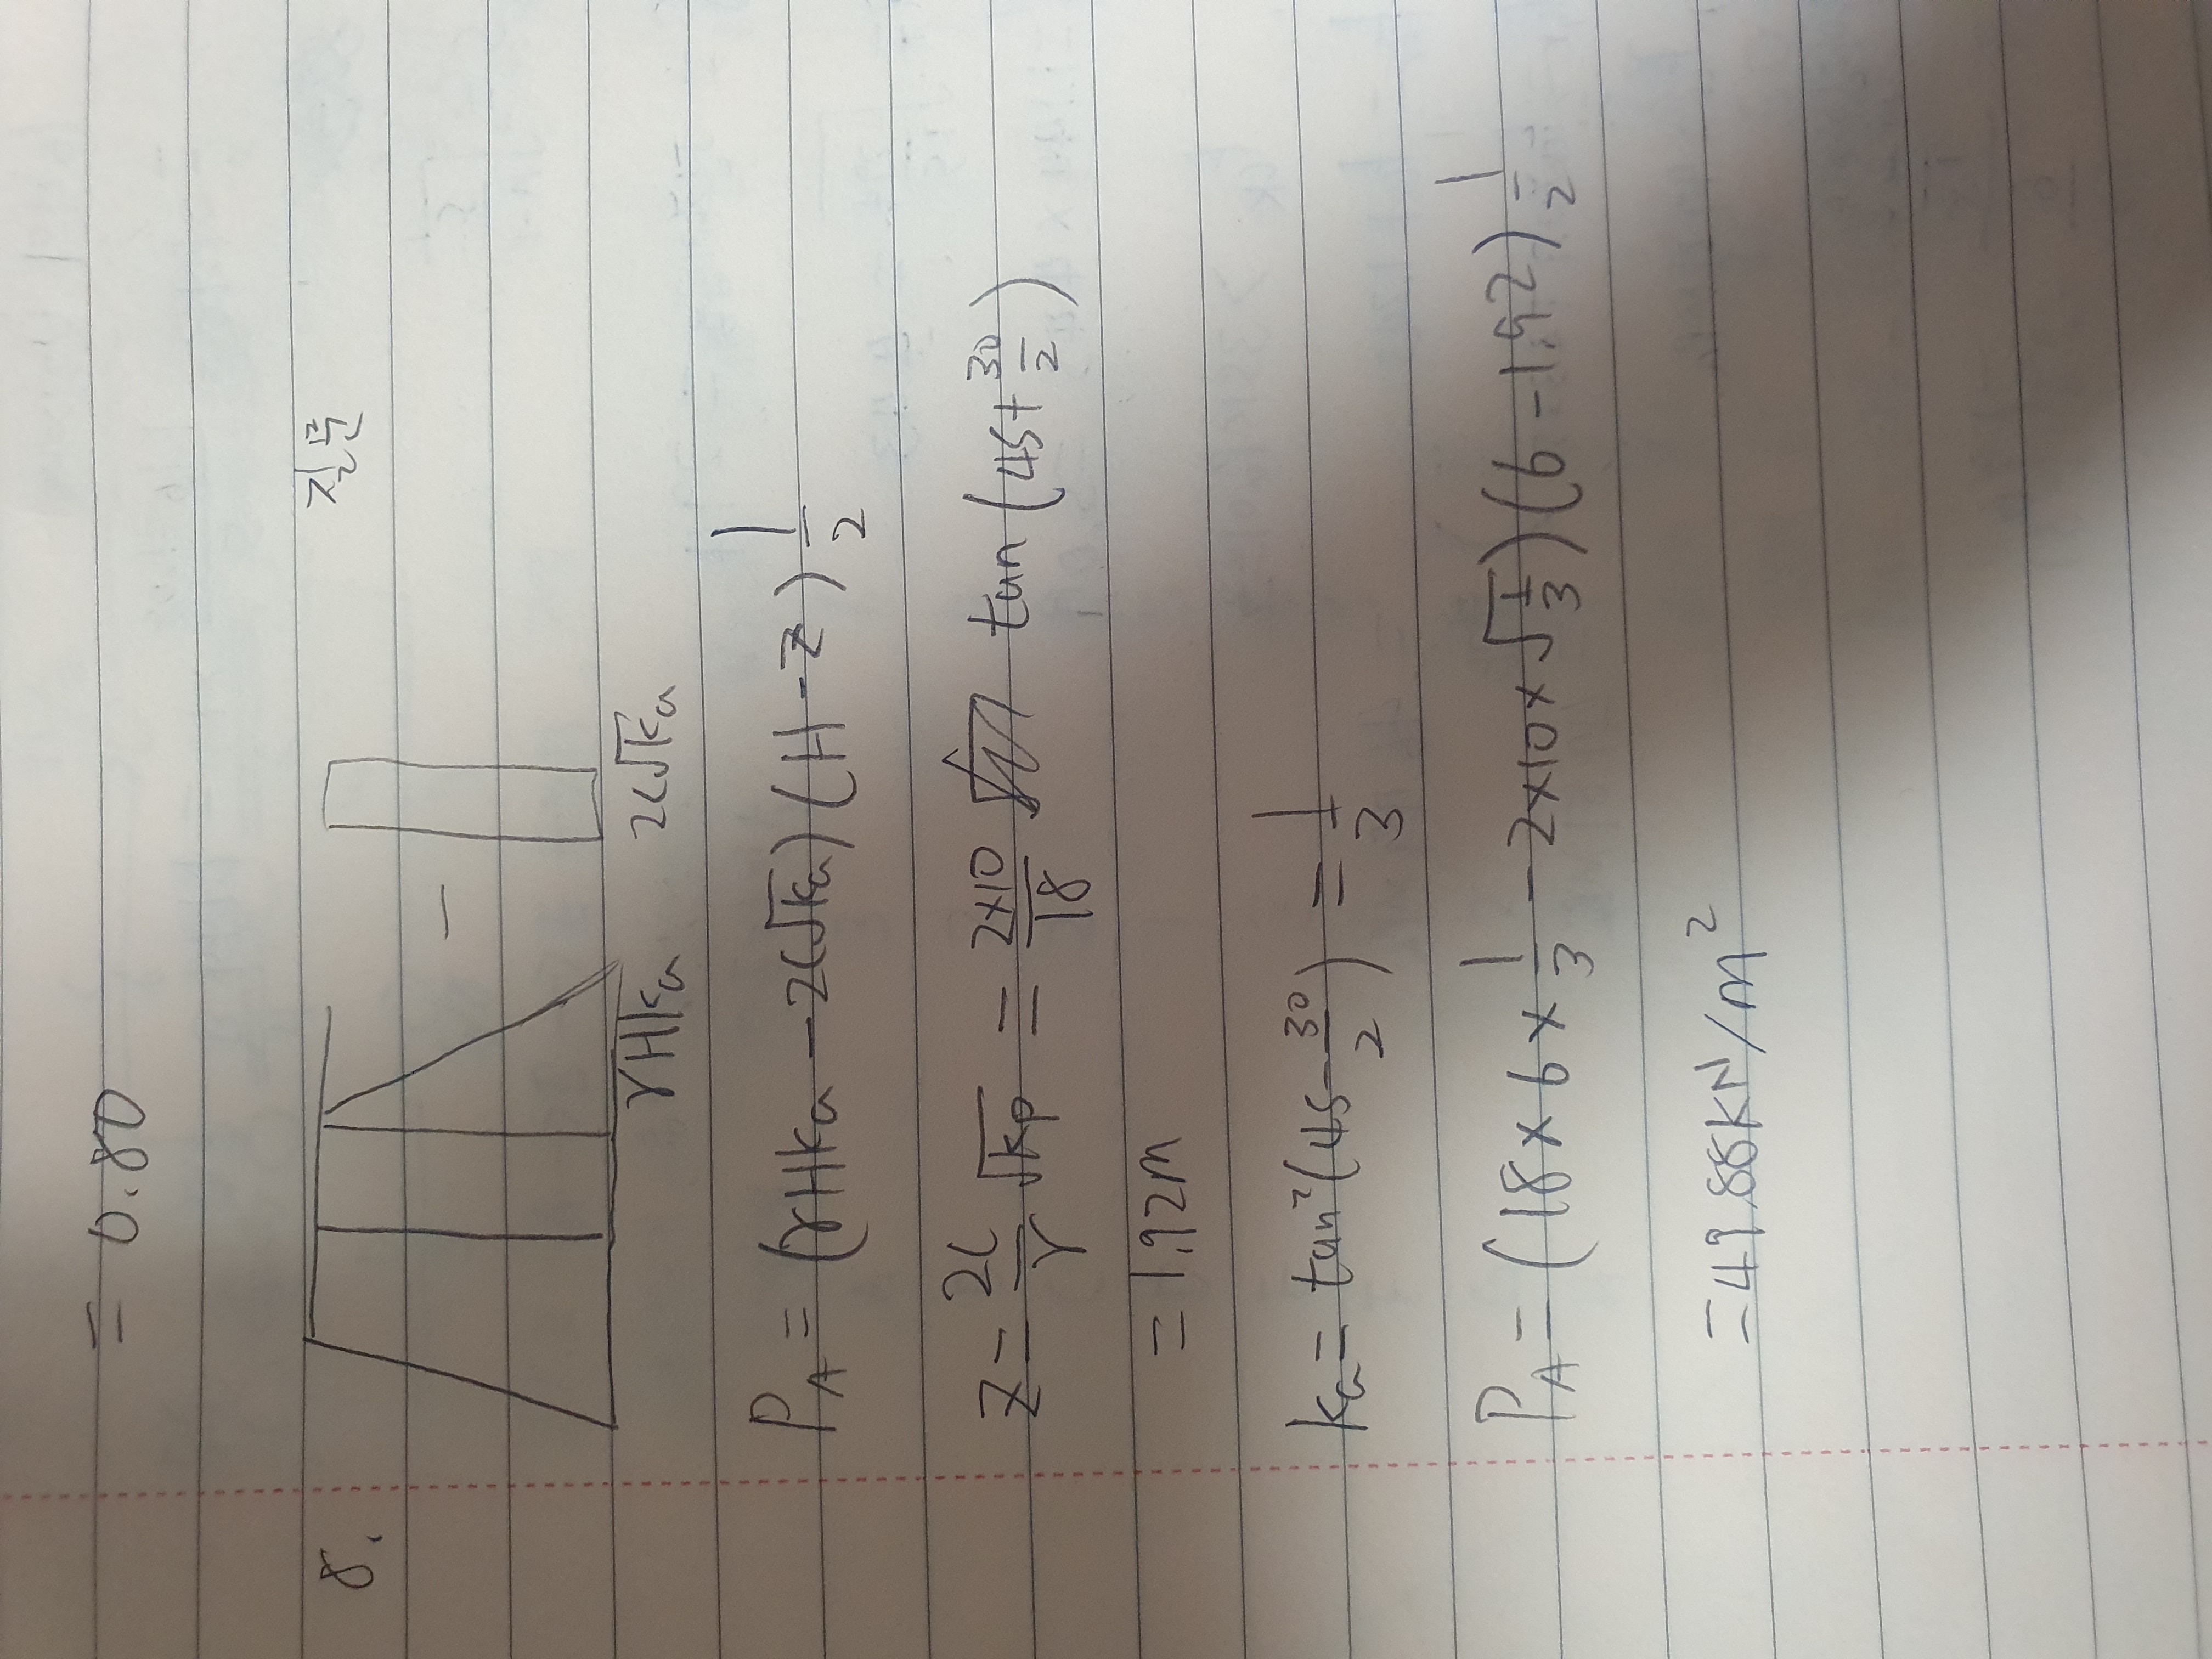 = 0.80
8.
질문
γHka - 2c√ka
P_A = (γHka - 2c√ka)(H-z)1/2
z = 2c/γ √kp = 2×10/18 tan(45+30/2)
= 1.92m
ka = tan²(45-30/2) = 1/3
P_A = (18×6×1/3 - 2×10×√1/3)(6-1.92)1/2
= 49.88kN/m²